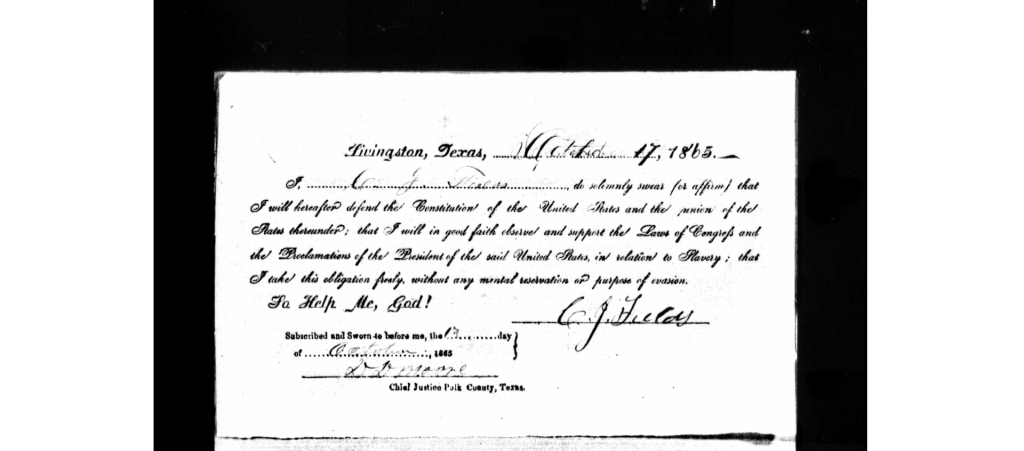 Livingston, Texas, October 17, 1865.
I, C. J. Fields, do solemnly swear (or affirm) that
I will hereafter defend the Constitution of the United States and the union of the
States thereunder; that I will in good faith observe and support the Laws of Congress and
the Proclamations of the President of the said United States, in relation to Slavery; that
I take this obligation freely, without any mental reservation or purpose of evasion.
So Help Me, God!
C. J. Fields
Subscribed and Sworn to before me, the 17 day
of October, 1865
D D Moore
Chief Justice Polk County, Texas.